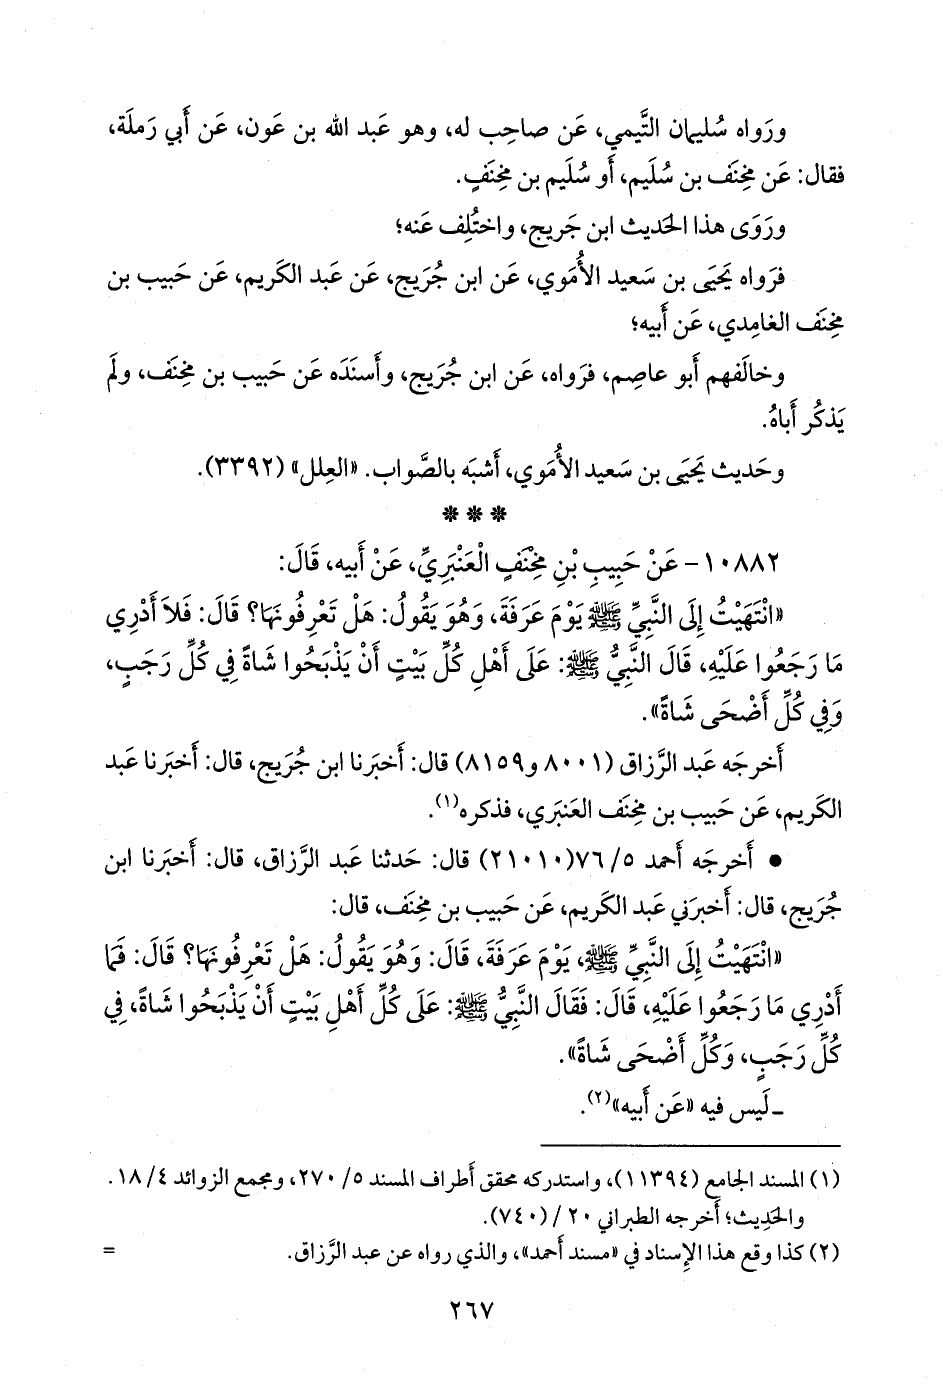 ورَواه سُليمان التَّيمي، عَن صاحِب له، وهو عَبد الله بن عَون، عَن أَبي رَملَة،
فقال: عَن مِخنَف بن سُلَيم، أَو سُلَيم بن مِخنَفٍ.
ورَوَى هذا الحَديث ابن جَريج، واختُلِف عَنه؛
فرَواه يَحيَى بن سَعيد الأُمَوي، عَن ابن جُرَيج، عَن عَبد الكَريم، عَن حَبيب بن
مِخنَف الغامِدي، عَن أَبيه؛
وخالَفهم أَبو عاصِم، فرَواه، عَن ابن جُرَيج، وأَسنَدَه عَن حَبيب بن مِخنَف، ولَم
يَذكُر أَباهُ.
وحَديث يَحيَى بن سَعيد الأُمَوي، أَشبَه بالصَّواب. «العِلل» (٣٣٩٢).
* * *
١٠٨٨٢ - عَنْ حَبِيبِ بْنِ مِخْنَفٍ الْعَنْبَرِيِّ، عَنْ أَبيه، قَالَ:
«انْتَهَيْتُ إِلَى النَّبِيِّ ﷺ يَوْمَ عَرَفَةَ، وَهُوَ يَقُولُ: هَلْ تَعْرِفُونَهَا؟ قَالَ: فَلاَ أَدْرِي
مَا رَجَعُوا عَلَيْهِ، قَالَ النَّبِيُّ ﷺ: عَلَى أَهْلِ كُلِّ بَيْتٍ أَنْ يَذْبَحُوا شَاةً فِي كُلِّ رَجَبٍ،
وَفِي كُلِّ أَضْحَى شَاةً».
أَخرجَه عَبد الرَّزاق (٨٠٠١ و٨١٥٩) قال: أَخبَرنا ابن جُرَيج، قال: أَخبَرنا عَبد
الكَريم، عَن حَبيب بن مِخنَف العَنبَري، فذكره(١).
● أَخرجَه أَحمد ٥/ ٧٦(٢١٠١٠) قال: حَدثنا عَبد الرَّزاق، قال: أَخبَرنا ابن
جُرَيج، قال: أَخبرَني عَبد الكَريم، عَن حَبيب بن مِخنَف، قال:
«انْتَهَيْتُ إِلَى النَّبِيِّ ﷺ، يَوْمَ عَرَفَةَ، قَالَ: وَهُوَ يَقُولُ: هَلْ تَعْرِفُونَهَا؟ قَالَ: فَمَا
أَدْرِي مَا رَجَعُوا عَلَيْهِ، قَالَ: فَقَالَ النَّبِيُّ ﷺ: عَلَى كُلِّ أَهْلِ بَيْتٍ أَنْ يَذْبَحُوا شَاةً، فِي
كُلِّ رَجَبٍ، وَكُلِّ أَضْحَى شَاةً».
ـ لَيس فيه «عَن أَبيه»(٢).
(١) المسند الجامع (١١٣٩٤)، واستدركه محقق أَطراف المسند ٥/ ٢٧٠، ومجمع الزوائد ٤/ ١٨.
والحَدِيث؛ أَخرجه الطبراني ٢٠/ (٧٤٠).
(٢) كذا وقع هذا الإِسناد في «مسند أَحمد»، والذي رواه عن عبد الرَّزاق. =
٢٦٧